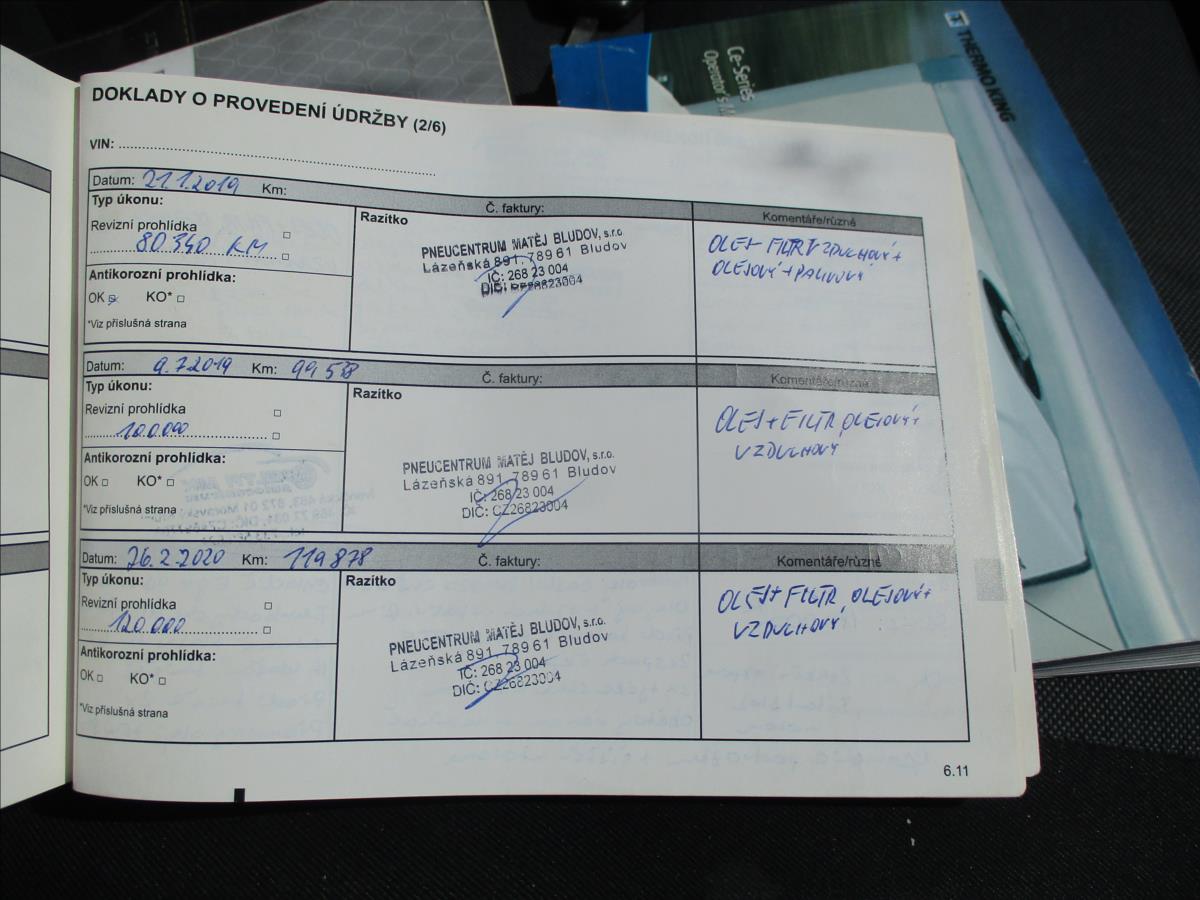 DOKLADY O PROVEDENÍ ÚDRŽBY (2/6)
VIN:
Datum: 21.1.2019 Km: Č. faktury: Komentáře/různé
Typ úkonu:
Razítko
Revizní prohlídka
80.340 KM
Antikorozní prohlídka:
OK KO*
*Viz příslušná strana
PNEUCENTRUM MATĚJ BLUDOV, s.r.o.
Lázeňská 891, 789 61 Bludov
IČ: 268 23 004
DIČ: CZ26823004
OLEJ+ FILTR VZDUCHOVÝ+
OLEJOVÝ+PALIVOVÝ
Datum: 9.7.2019 Km: 99 538 Č. faktury: Komentáře/různé
Typ úkonu:
Razítko
Revizní prohlídka
100.000
Antikorozní prohlídka:
OK KO*
*Viz příslušná strana
PNEUCENTRUM MATĚJ BLUDOV, s.r.o.
Lázeňská 891, 789 61 Bludov
IČ: 268 23 004
DIČ: CZ26823004
OLEJ+FILTR OLEJOVÝ+
VZDUCHOVÝ
Datum: 26.2.2020 Km: 119 878 Č. faktury: Komentáře/různé
Typ úkonu:
Razítko
Revizní prohlídka
120.000
Antikorozní prohlídka:
OK KO*
*Viz příslušná strana
PNEUCENTRUM MATĚJ BLUDOV, s.r.o.
Lázeňská 891, 789 61 Bludov
IČ: 268 23 004
DIČ: CZ26823004
OLEJ+ FILTR OLEJOVÝ+
VZDUCHOVÝ
6.11
THERMO KING
Ce-Series
Operator's